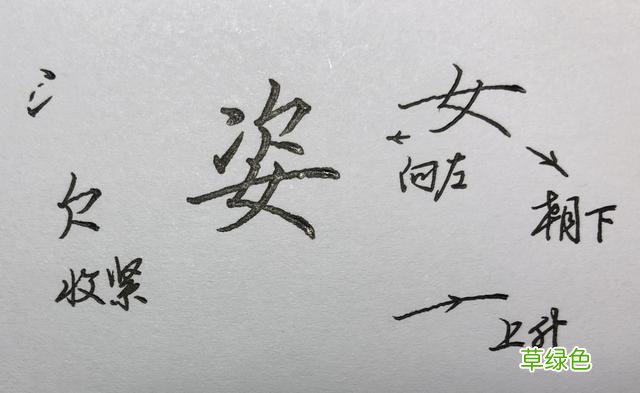 冫
姿
女
向左
欠
朝下
收紧
上升
草绿色